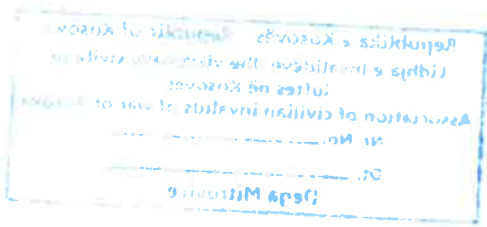 Republika e Kosovës Republic of Kosovo
Lidhja e Invalidëve dhe civile të
luftës në Kosovë
Association of civilian invalids of war of Kosova
Nr. No.
Dt.
Dega Mitrovicë